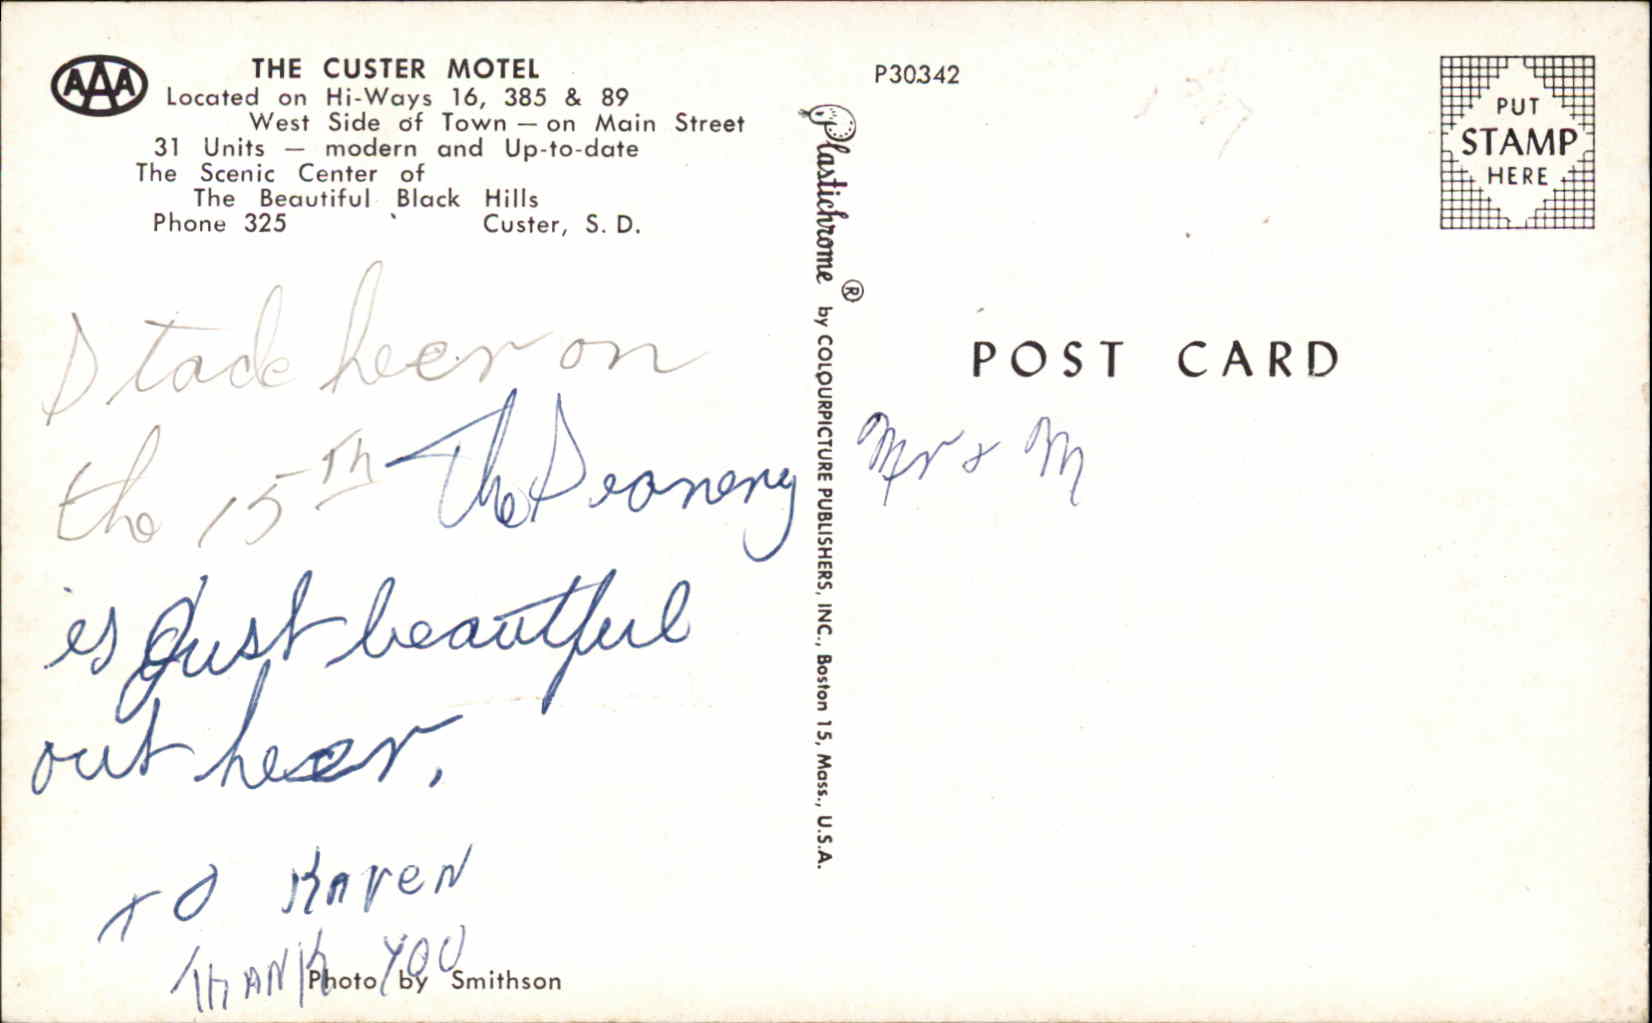 AAA
THE CUSTER MOTEL
Located on Hi-Ways 16, 385 & 89
West Side of Town — on Main Street
31 Units — modern and Up-to-date
The Scenic Center of
The Beautiful Black Hills
Phone 325 Custer, S. D.
Stade heer on
the 15TH The Seanery
is Just beautful
out heer.
TO KAREN
THANK YOU
Photo by Smithson
Plastichrome ® by COLOURPICTURE PUBLISHERS, INC., Boston 15, Mass., U.S.A.
P30342
PUT
STAMP
HERE
POST CARD
Mr & M